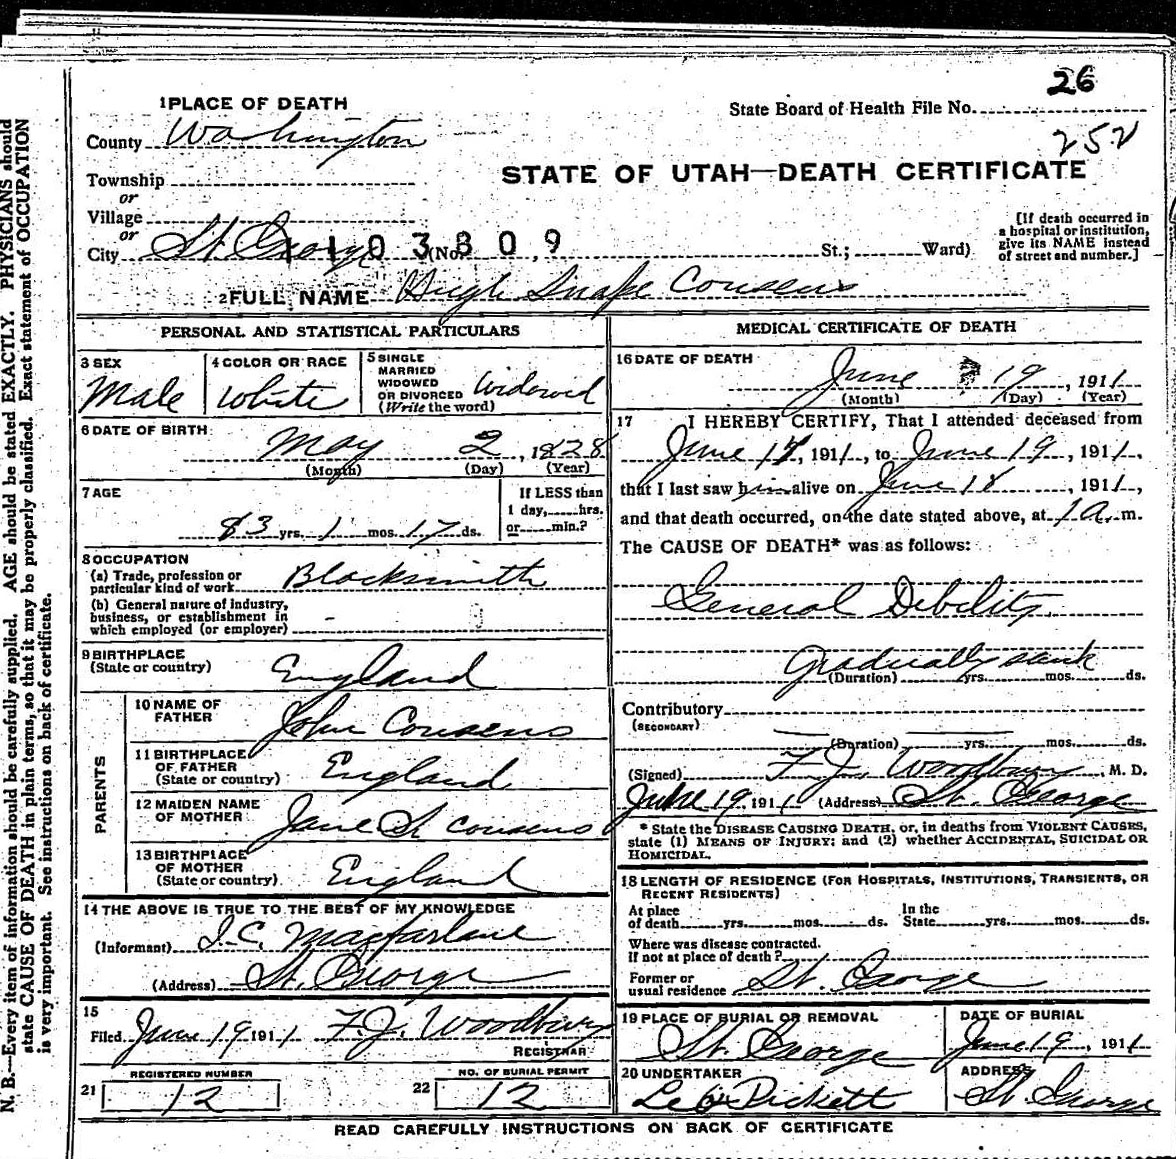 26
State Board of Health File No.
252
1 PLACE OF DEATH
County Washington
STATE OF UTAH—DEATH CERTIFICATE
Township
or
Village
or
City St. George (No. St.; Ward)
1103809
[If death occurred in
a hospital or institution,
give its NAME instead
of street and number.]
2 FULL NAME Hugh Snape Cousens
PERSONAL AND STATISTICAL PARTICULARS
3 SEX
Male
4 COLOR OR RACE
White
5 SINGLE
MARRIED
WIDOWED
OR DIVORCED
(Write the word)
Widowed
6 DATE OF BIRTH
May 2, 1828
(Month) (Day) (Year)
7 AGE
83 yrs. 1 mos. 17 ds.
If LESS than
1 day, hrs.
or min.?
8 OCCUPATION
(a) Trade, profession or
particular kind of work Blacksmith
(b) General nature of industry,
business, or establishment in
which employed (or employer)
9 BIRTHPLACE
(State or country) England
PARENTS
10 NAME OF
FATHER John Cousens
11 BIRTHPLACE
OF FATHER
(State or country) England
12 MAIDEN NAME
OF MOTHER Jane St Cousens
13 BIRTHPLACE
OF MOTHER
(State or country) England
14 THE ABOVE IS TRUE TO THE BEST OF MY KNOWLEDGE
(Informant) I. C. Macfarlane
(Address) St. George
15
Filed June 19 1911 F. J. Woodbury
REGISTRAR
21 REGISTERED NUMBER
12
22 NO. OF BURIAL PERMIT
12
MEDICAL CERTIFICATE OF DEATH
16 DATE OF DEATH
June 19, 1911
(Month) (Day) (Year)
17 I HEREBY CERTIFY, That I attended deceased from
June 17, 1911, to June 19, 1911,
that I last saw him alive on June 18, 1911,
and that death occurred, on the date stated above, at 1 a. m.
The CAUSE OF DEATH* was as follows:
General Debility
Gradually sank
(Duration) yrs. mos. ds.
Contributory
(SECONDARY)
(Duration) yrs. mos. ds.
(Signed) F. J. Woodbury, M. D.
June 19, 1911 (Address) St. George
* State the DISEASE CAUSING DEATH, or, in deaths from VIOLENT CAUSES,
state (1) MEANS OF INJURY; and (2) whether ACCIDENTAL, SUICIDAL OR
HOMICIDAL.
18 LENGTH OF RESIDENCE (FOR HOSPITALS, INSTITUTIONS, TRANSIENTS, OR
RECENT RESIDENTS)
At place
of death yrs. mos. ds.
In the
State yrs. mos. ds.
Where was disease contracted.
If not at place of death?
Former or
usual residence St. George
19 PLACE OF BURIAL OR REMOVAL
St. George
DATE OF BURIAL
June 19, 1911
20 UNDERTAKER
Leo Pickett
ADDRESS
St. George
READ CAREFULLY INSTRUCTIONS ON BACK OF CERTIFICATE
N. B.—Every item of information should be carefully supplied. AGE should be stated EXACTLY. PHYSICIANS should
state CAUSE OF DEATH in plain terms, so that it may be properly classified. Exact statement of OCCUPATION
is very important. See instructions on back of certificate.